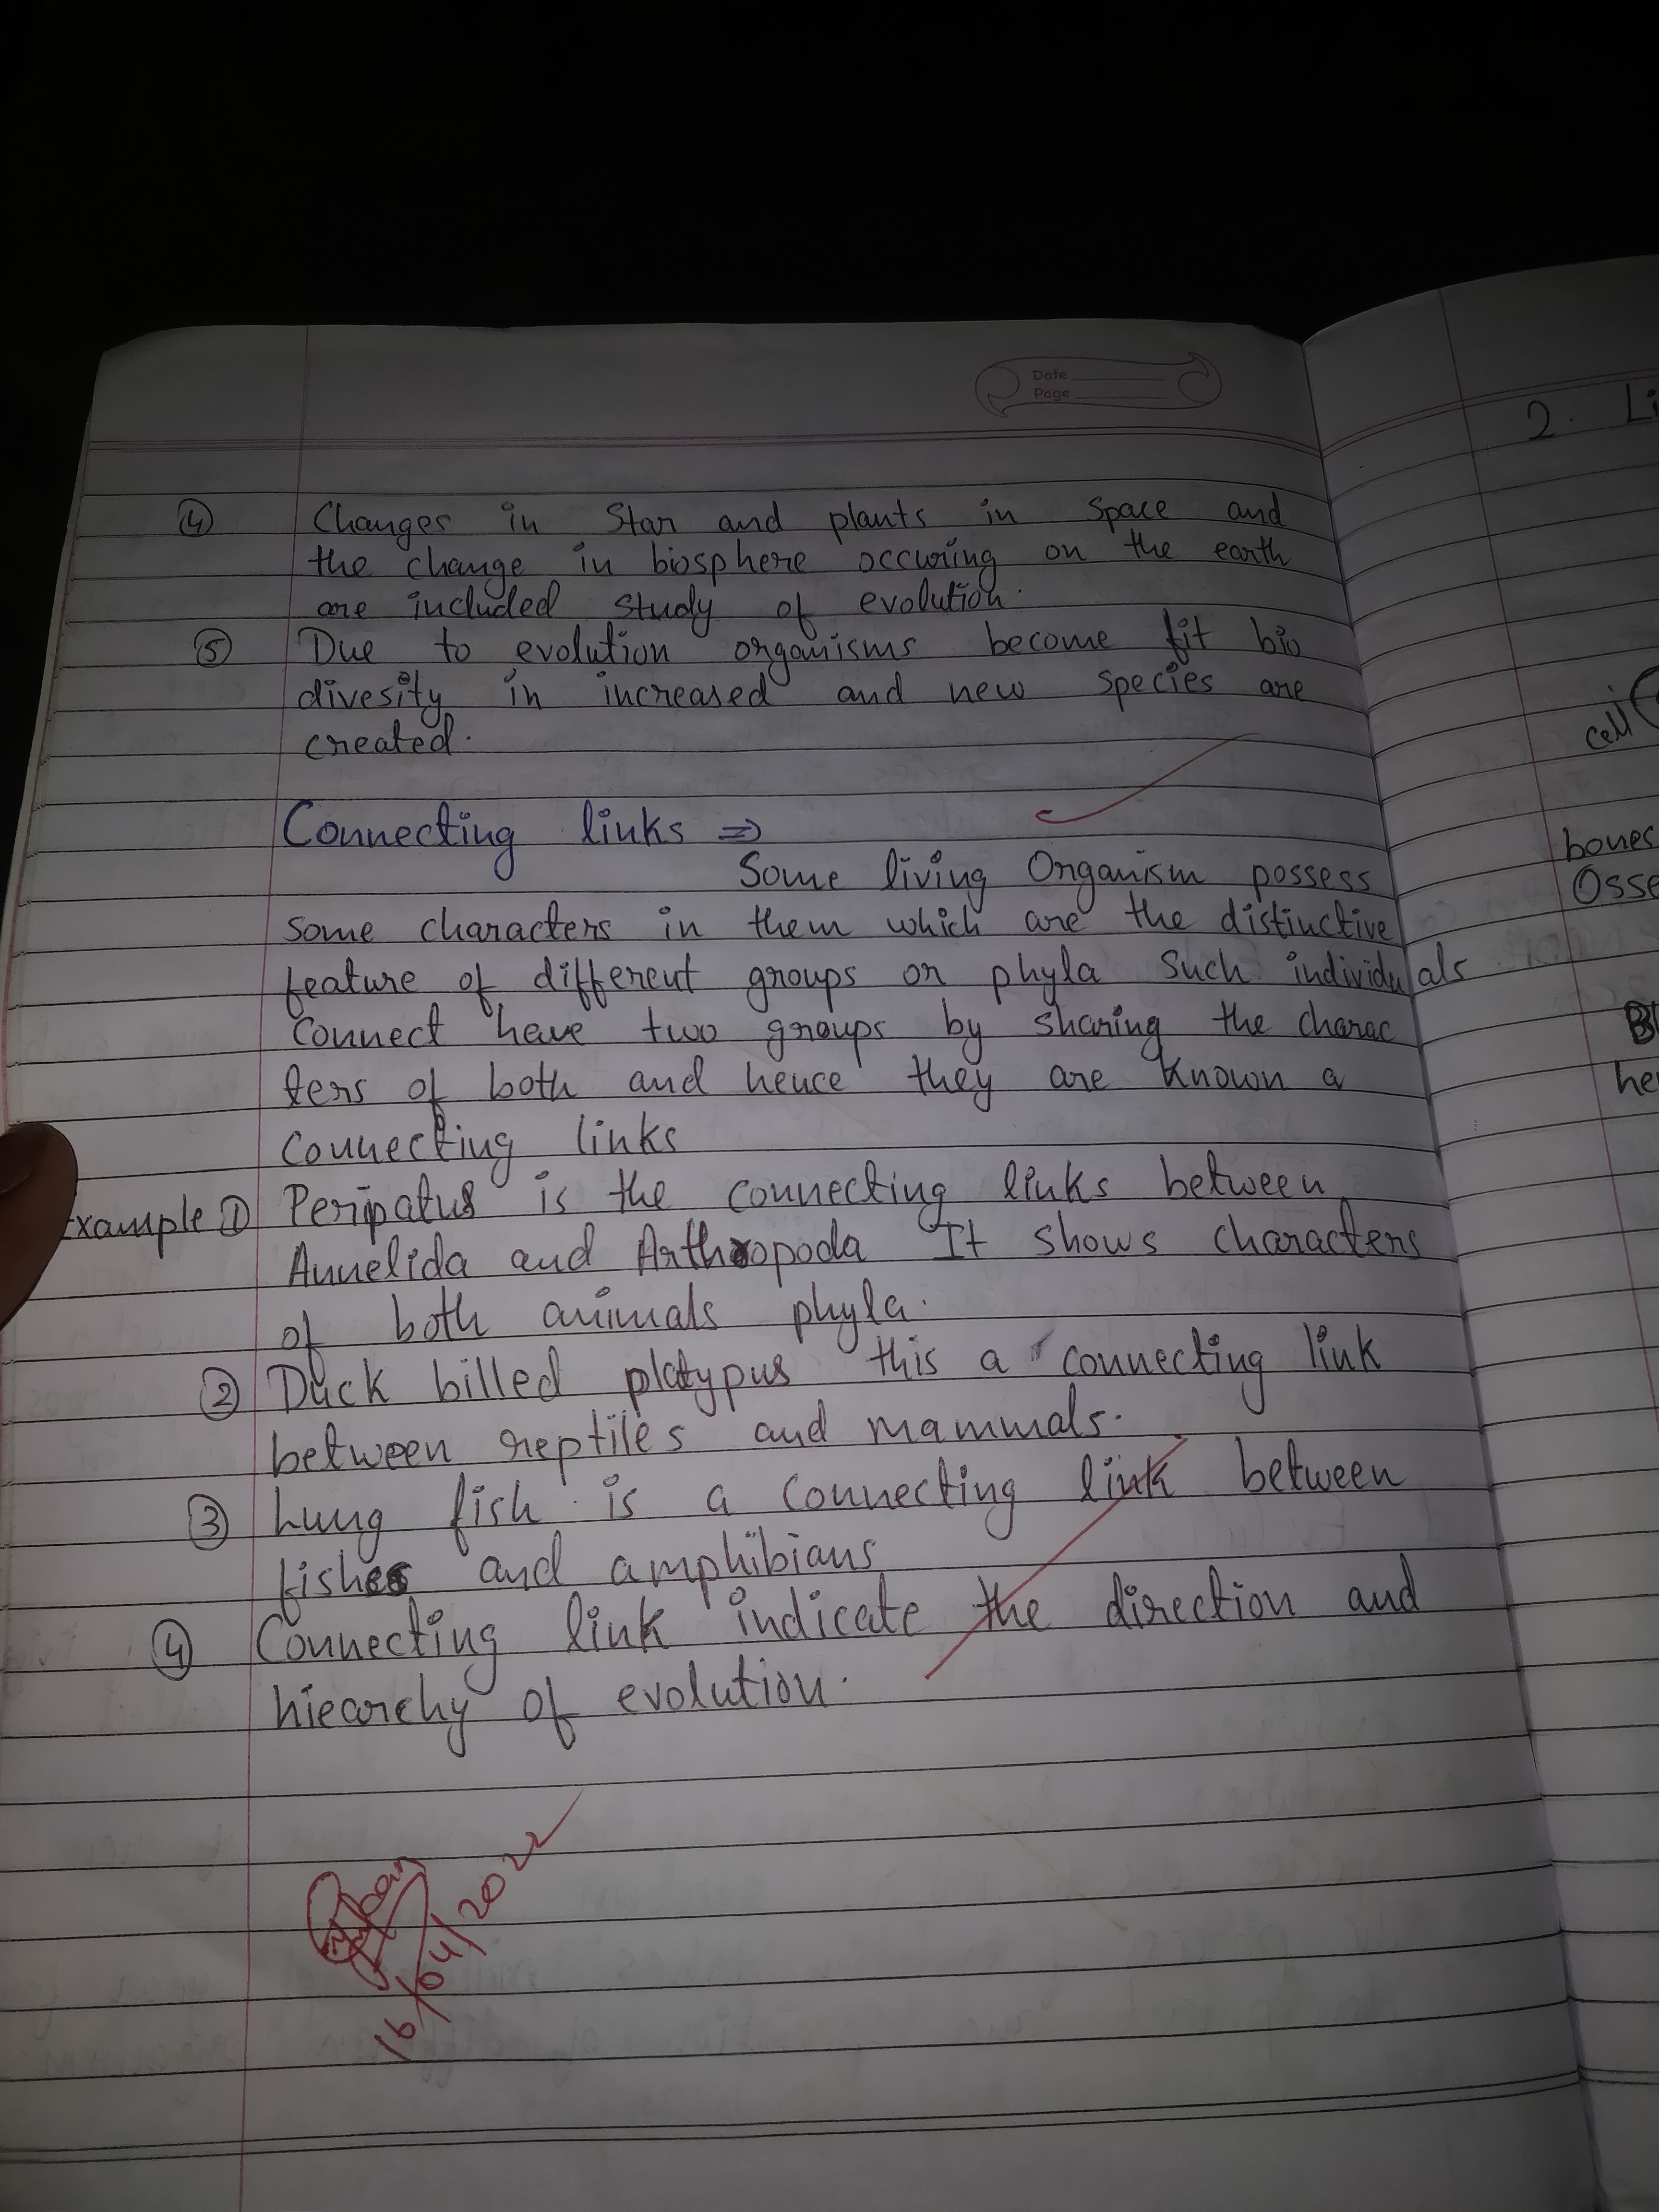 Date
Page
④ Changes in Star and plants in Space and
the change in biosphere occuring on the earth
are included study of evolution.
⑤ Due to evolution organisms become fit bio
divesity in increased and new species are
created.
Connecting links ⇒
Some living Organism possess
some characters in them which are the distinctive
feature of different groups or phyla Such individuals
Connect have two groups by sharing the charac
ters of both and hence they are known a
connecting links
Example ① Peripatus is the connecting links between
Annelida and Arthropoda It shows characters
of both animals phyla.
② Duck billed platypus this a connecting link
between reptiles and mammals.
③ Lung fish is a connecting link between
fishes and amphibians
④ Connecting link indicate the direction and
hiearchy of evolution.
16/04/2022
2. Li
cell
bones
Osse
he